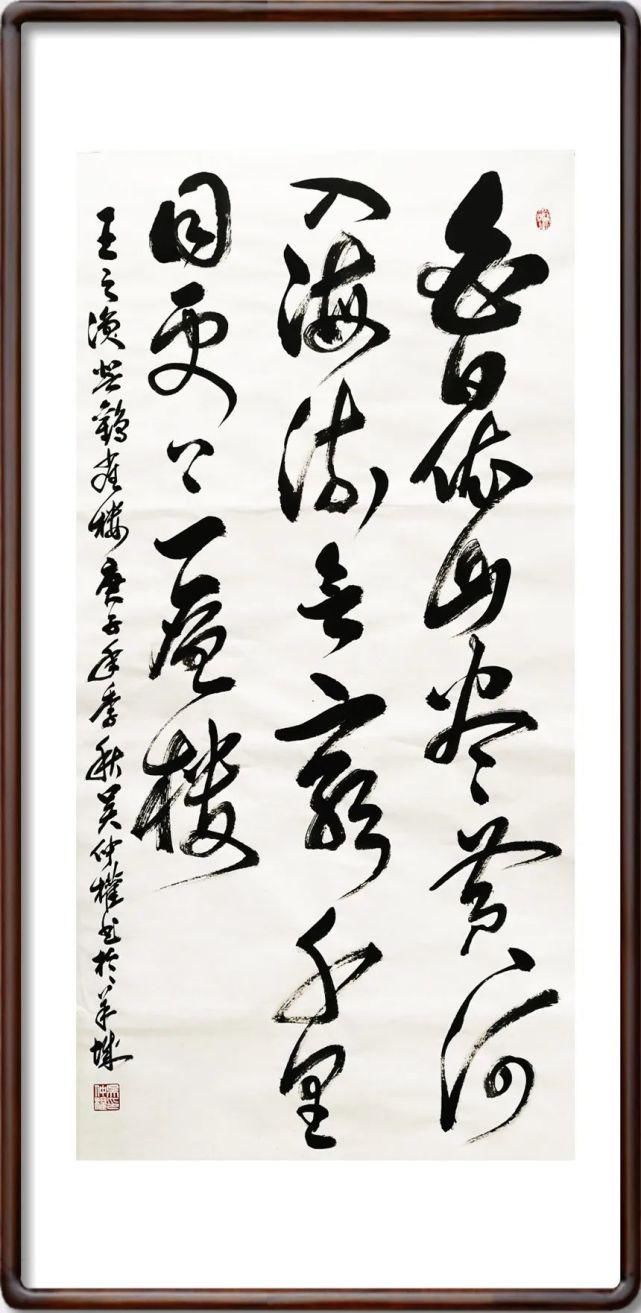 白日依山尽黄河
入海流欲窮千里
目更上一層楼
王之涣登鹳雀楼庚子年季秋吴仲權书於羊城